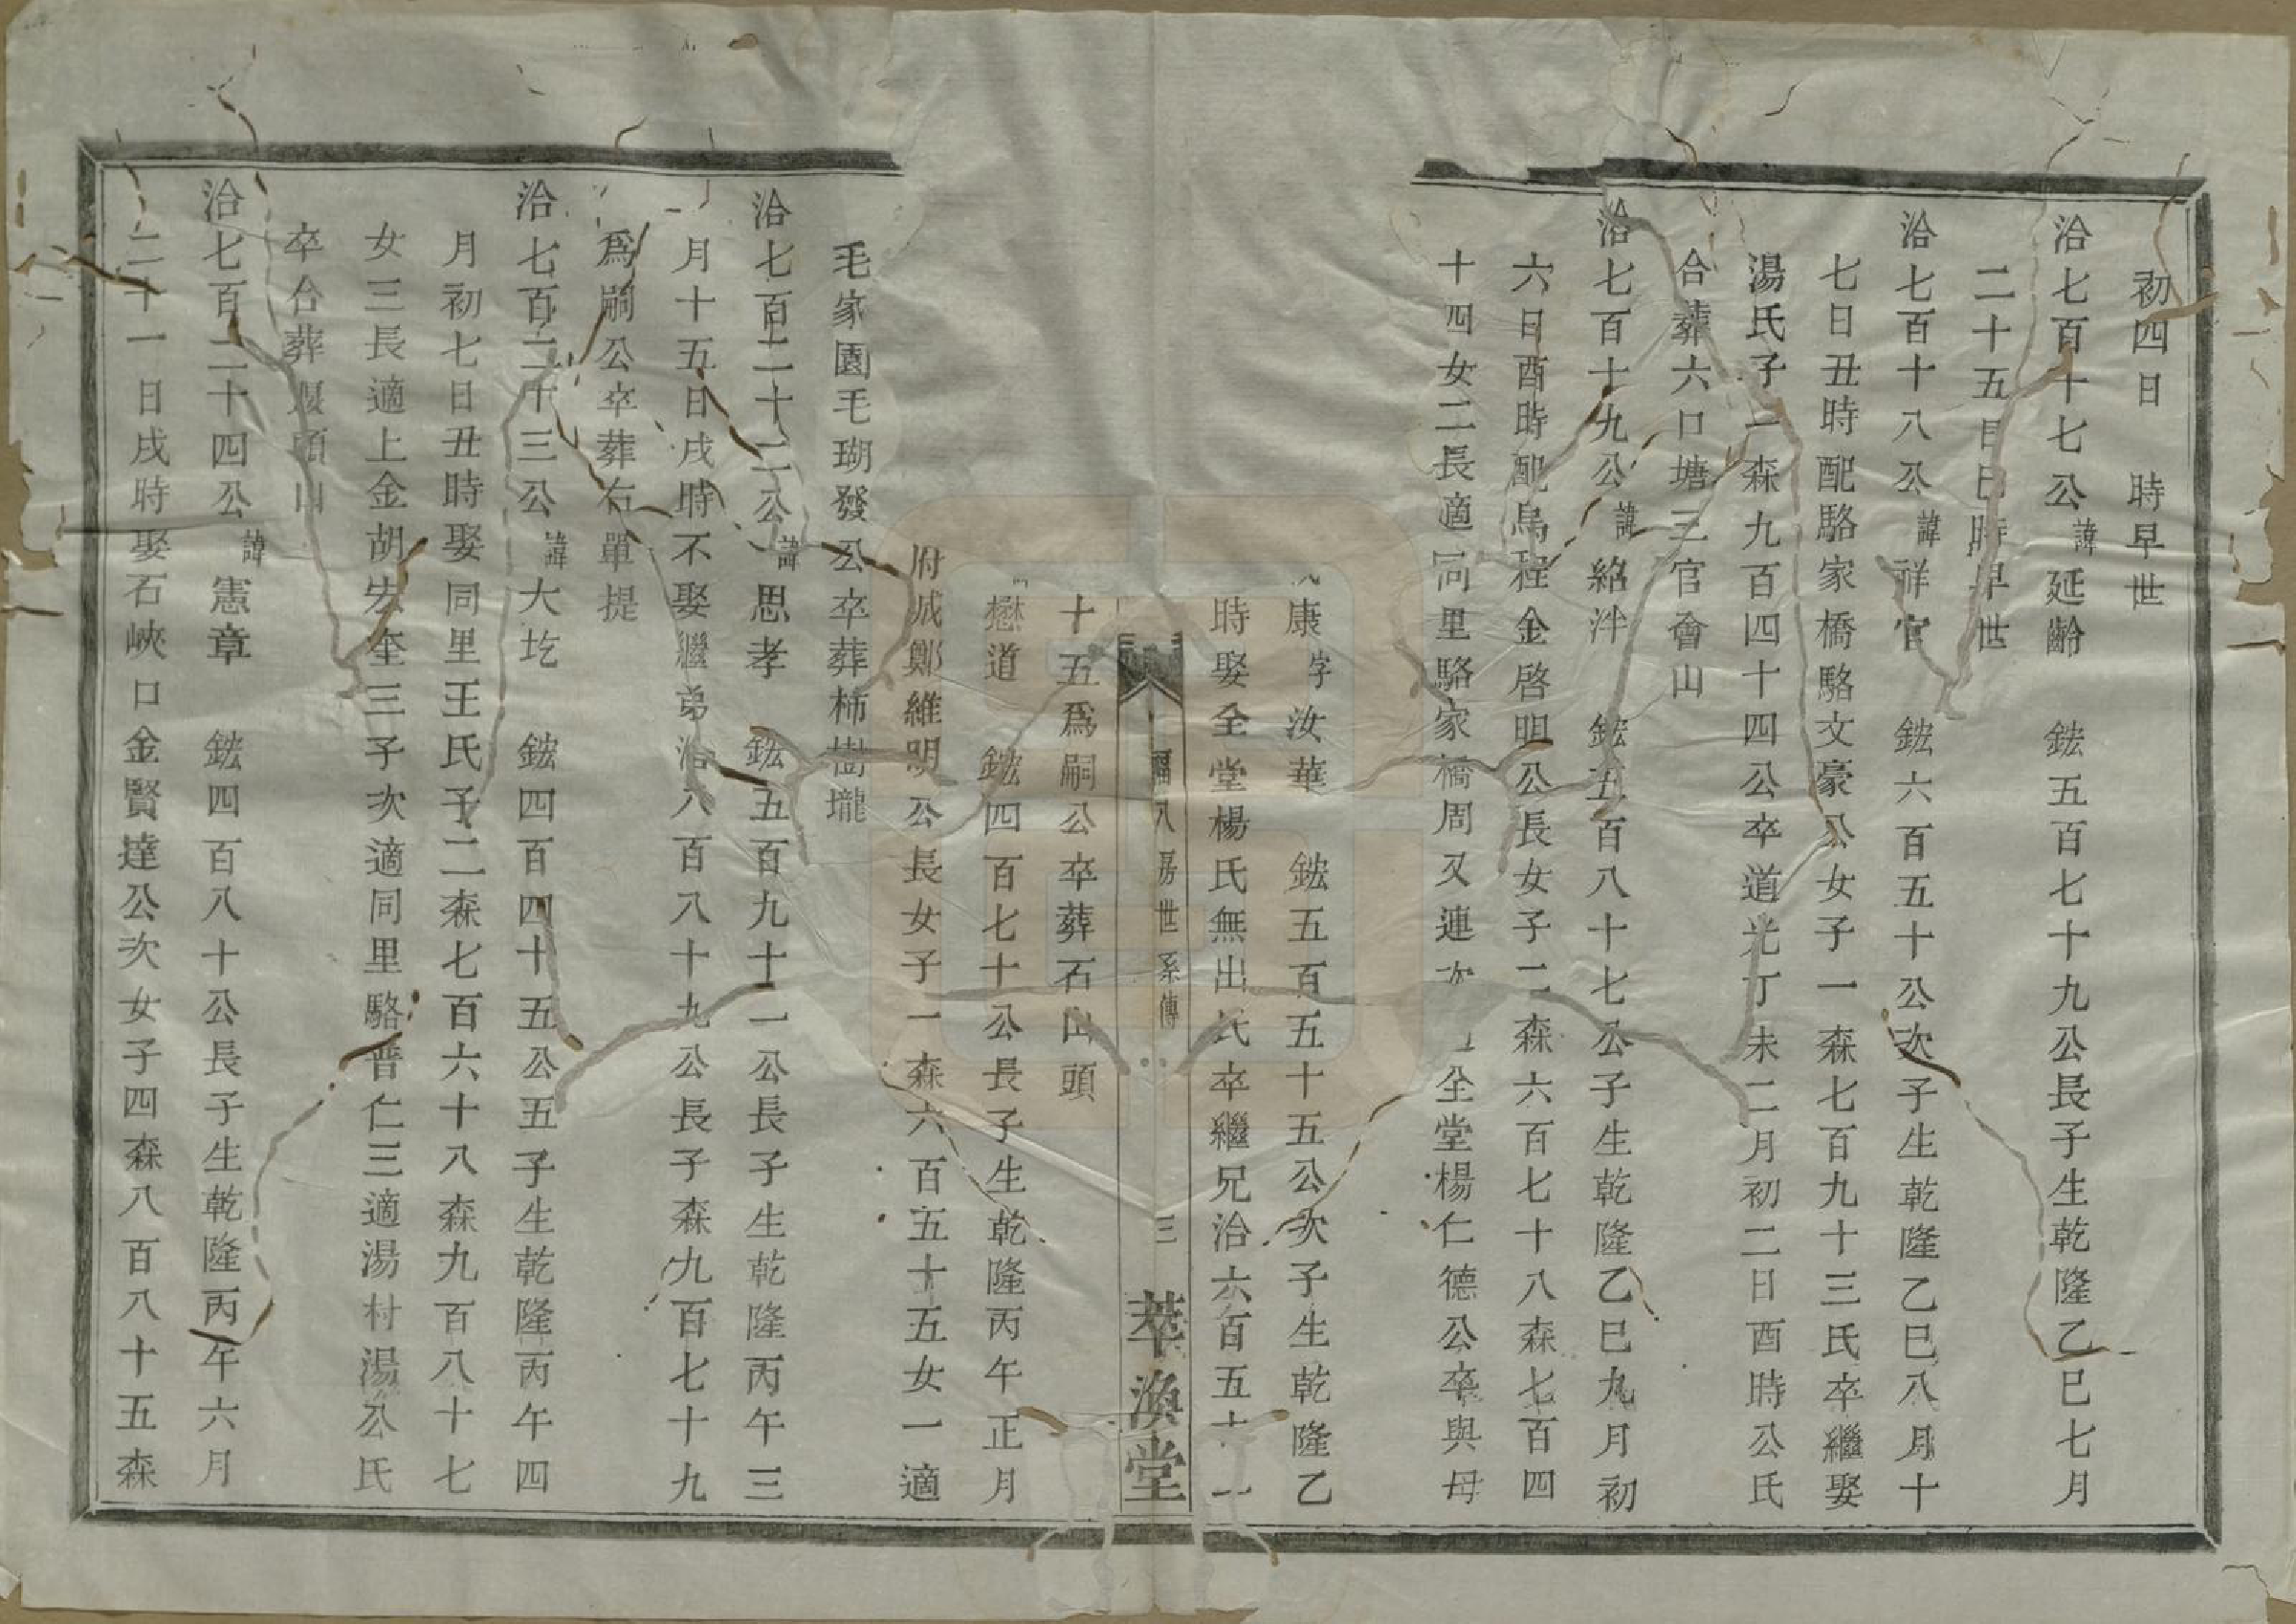 初四日　時早世
洽七百十七公諱延齡　鋐五百七十九公長子生乾隆乙巳七月
二十五日巳時早世
洽七百十八公諱祥官　鋐六百五十公次子生乾隆乙巳八月十
七日丑時配駱家橋駱文豪公女子一森七百九十三氏卒繼娶
湯氏子一森九百四十四公卒道光丁未二月初二日酉時公氏
合葬六口塘三官會山
洽七百十九公諱絡泮　鋐五百八十七公子生乾隆乙巳九月初
六日酉時配烏程金啓明公長女子二森六百七十八森七百四
十四女二長適同里駱家橋周又連次　全堂楊仁德公卒與母
康字汝華　鋐五百五十五公次子生乾隆乙
時娶全堂楊氏無出氏卒繼兄洽六百五十一
福八房世系傳　三　萃渙堂
十五爲嗣公卒葬石山頭
懋道　鋐四百七十公長子生乾隆丙午正月
附城鄭維明公長女子一森六百五十五女一適
毛家園毛瑚發公卒葬柿樹壠
洽七百二十二公諱思孝　鋐五百九十一公長子生乾隆丙午三
月十五日戌時不娶繼弟洽八百八十九公長子森九百七十九
爲嗣公卒葬右單提
洽七百二十三公諱大圪　鋐四百四十五公五子生乾隆丙午四
月初七日丑時娶同里王氏子二森七百六十八森九百八十七
女三長適上金胡宏奎三子次適同里駱普仁三適湯村湯公氏
卒合葬頭山
洽七百二十四公諱憲章　鋐四百八十公長子生乾隆丙午六月
二十一日戌時娶石峽口金賢達公次女子四森八百八十五森